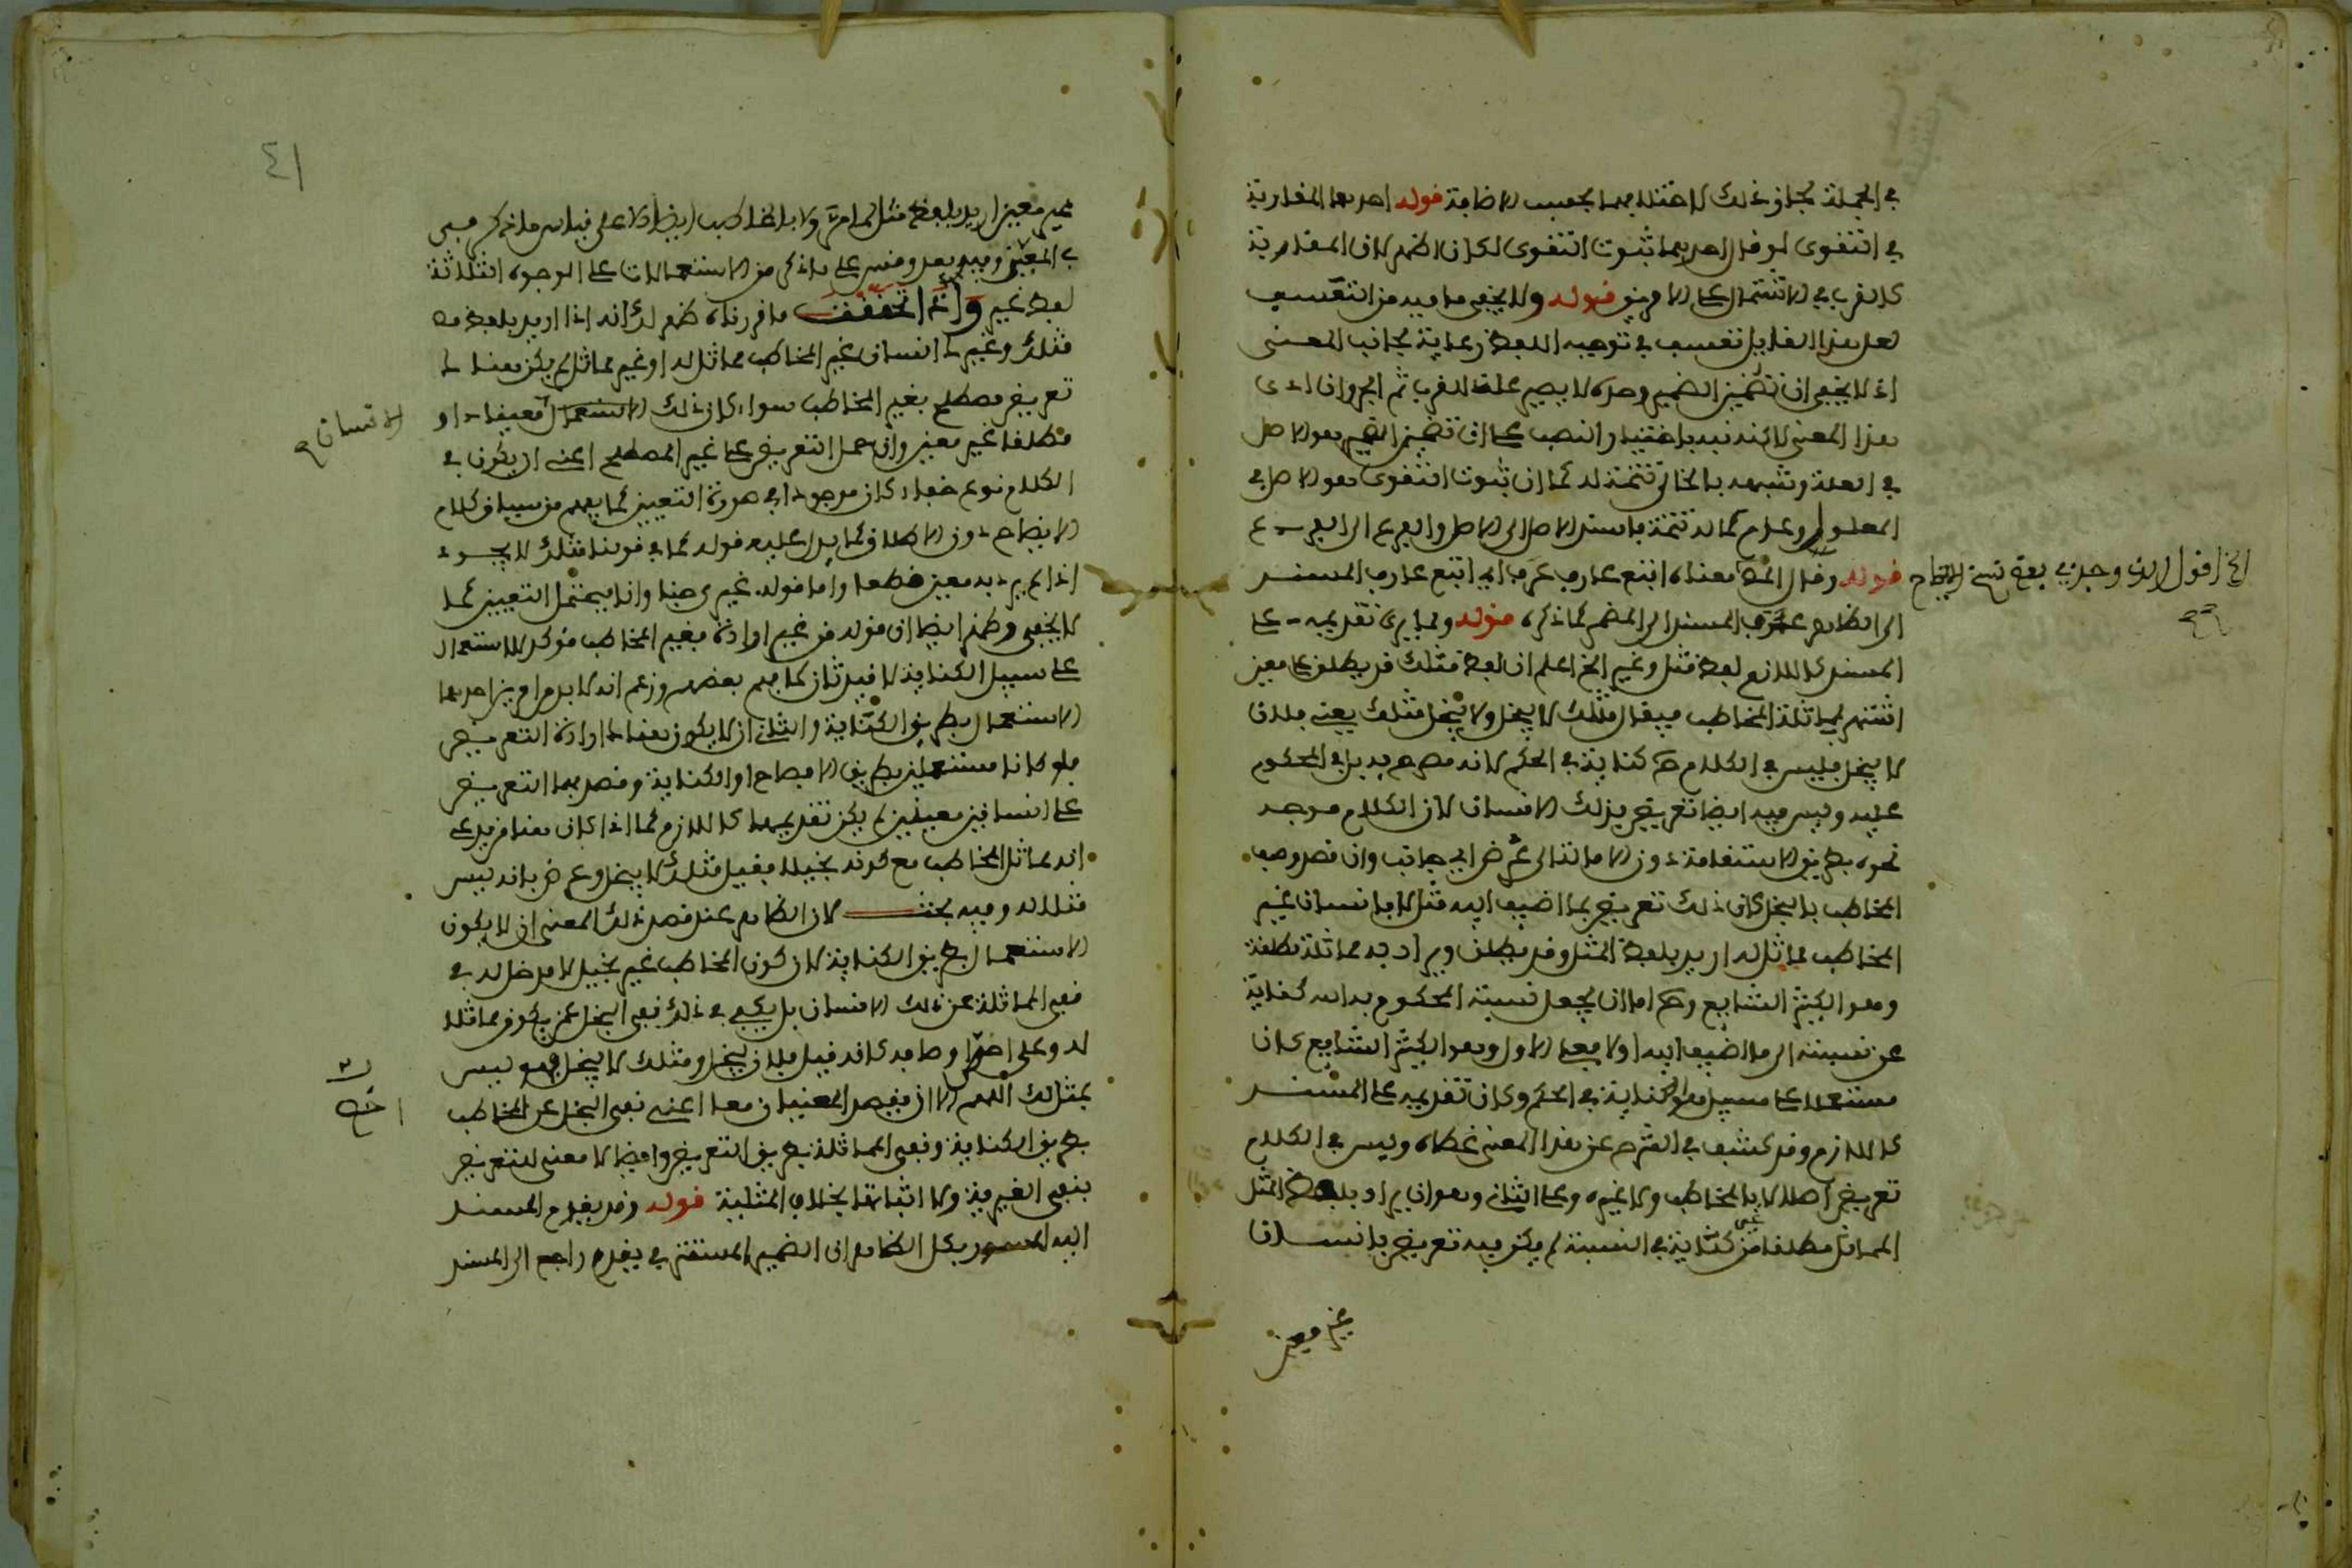 في الجملة بخلاف ذلك لاختلالهما بحسب الاضافة قوله احدهما المقاربة
في التقوى لو قال احدهما ثبوت التقوى لكان اظهر لان المقاربة
كالقرب في الاشتمال على الامرين قوله ولا يخفى ما فيه من التعسف
لعل هذا القائل تعسف في توجيه اللفظ رعاية بجانب المعنى
اذ لا يخفى ان تضمين الضمير وحده لا يصير علة للقرب ثم الجر وان ادى
هذا المعنى لاكنه نبه باختيار النصب على ان تضمين الضمير هو الاصل
في العلة وشبهه بالخالي تتمة له كما ان ثبوت التقوى هو الاصل في
المعلول وعدم كماله تتمة فاسند الاصل الى الاصل والفرع الى الفرع
قوله وقال المص معناه اتبع عارف عرف اي اتبع عارف المسند
الى الظاهر عرف المسند الى المضمر كما ذكره قوله ومما يرى تقديمه على
المسند كاللازم لفظ مثل وغير الخ اعلم ان لفظ مثلك قد يطلق على معين
اشتهر بمماثلة المخاطب فيقال مثلك لا يبخل ولا يبخل مثلك يعني فلان
لا يبخل فليس في الكلام ح كناية في الحكم لانه مصرح به بل في المحكوم
عليه وليس فيه ايضا تعريض بذلك الانسان لان الكلام موجه
نحوه بطريق الاستقامة دون الامالة الى عرض اي جانب وان قصد وصف
المخاطب بالبخل كان ذلك تعريض بما اضيف اليه مثل لا بانسان غير
المخاطب مماثل له اريد بلفظ المثل وقد يطلق ويراد به مماثلة مطلقة
وهو الكثير الشايع وح اما ان يجعل نسبة المحكوم به اليه كناية
عن نسبته الى ما اضيف اليه اولا فعلى الاول وهو الكثير الشايع كان
مستعملا على سبيل الكناية في الحكم وكان تقديمه على المسند
كاللازم وقد كشف في الشرح عن هذا المعنى غطاه وليس في الكلام
تعريض اصلا لا بالمخاطب ولا غيره وعلى الثاني وهو ان يراد بلفظ المثل
المماثل مطلقا من غير كناية في النسبة لم يكن فيه تعريض بانسان
غير معين
الخ اقول الذي وجد في بعض نسخ الايضاح
٤١
غير معين اريد بلفظ مثل كما مر ولا بالمخاطب ايضا الا على قياس ما ذكر قبل
في المعين وفيه بعد وقس على ما ذكر من الاستعمالات على الوجوه الثلاثة
لفظ غير واذا تحققت ما قررناه ظهر لك انه اذا اريد بلفظ
مثلك وغيرك انسان غير المخاطب مماثل له او غير مماثل لم يكن هناك
تعريض مصطلح بغير المخاطب سواء كان ذلك معينا او
الانسان
مطلقا غير معين وان حمل التعريض على غير المصطلح اعني ان يكون في
الكلام نوع خفاء كان موجودا في صورة التعيين كما يفهم من سياق كلام
الايضاح دون الاطلاق كما يدل عليه قوله كما في قولنا مثلك لا يجود
اذا لم يرد به معين قطعا واما قوله غيري جنى وانما يحتمل التعيين كما
لا يخفى وظهر ايضا ان قوله من غير ارادة بغير المخاطب مؤكد للاستعمال
على سبيل الكناية لا قيد ثان كما فهم بعضهم وزعم انه لا بد من امرين احدهما
الاستعمال بطريق الكناية والثاني ان لا يكون هناك ارادة التعريض
فلو كانا مستعملين بطريق الافصاح او الكناية وقصد بهما التعريض
على انسانين معينين لم يكن تقديمهما كاللازم كما اذا كان هنا من يدعي
انه مماثل المخاطب مع كونه بخيلا فقيل مثلك لا يبخل وعرض بانه ليس
مثلا له وفيه بحث لان الظاهر عند قصد ذلك المعنى ان لا يكون
الاستعمال بطريق الكناية لان كون المخاطب غير بخيل لا مدخل له في
نفي المماثلة عن ذلك الانسان بل يكفي في ذلك نفي البخل عمن يكون مماثلا
له وعلى اخص اوصافه كانه قيل فلان يبخل ومثلك لا يبخل فهو ليس
بمثل لك اللهم الا ان يقصد المعنيان معا اعني نفي البخل عن المخاطب
بطريق الكناية ونفي المماثلة بطريق التعريض وايضا لا معنى للتعريض
بنفي الغيرية ولا اثباتها بخلاف المثلية قوله وقد يقدم المسند
اليه المسور بكل الظاهر ان الضمير المستتر في يقدم راجع الى المسند